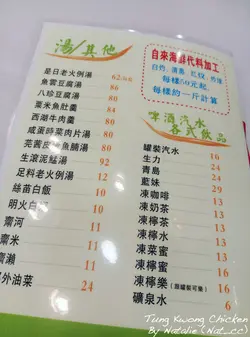 湯/其他
是日老火例湯 62/68
魚雲豆腐湯 86
八珍豆腐湯 80
粟米魚肚羹 84
西湖牛肉羹 80
咸蛋時菜肉片湯 80
芫茜皮蛋魚腩湯 80
生滾泥鯭湯 92
足料老火例湯 123
絲苗白飯 10
明火白粥 10
齋河 11
齋米 11
齋瀨 11
郊外油菜 24
自來海鮮代料加工
每樣50元起,
每樣約一斤計算
啤酒汽水
各式飲品
罐裝汽水 16
生力 24
青島 24
藍妹 29
凍咖啡 13
凍奶茶 13
凍檸茶 13
凍檸水 13
凍菜蜜 13
凍檸蜜 16
凍檸樂(原罐裝可樂) 16
礦泉水 6
Tung Kwong Chicken
By Natalie (Nat_cc)